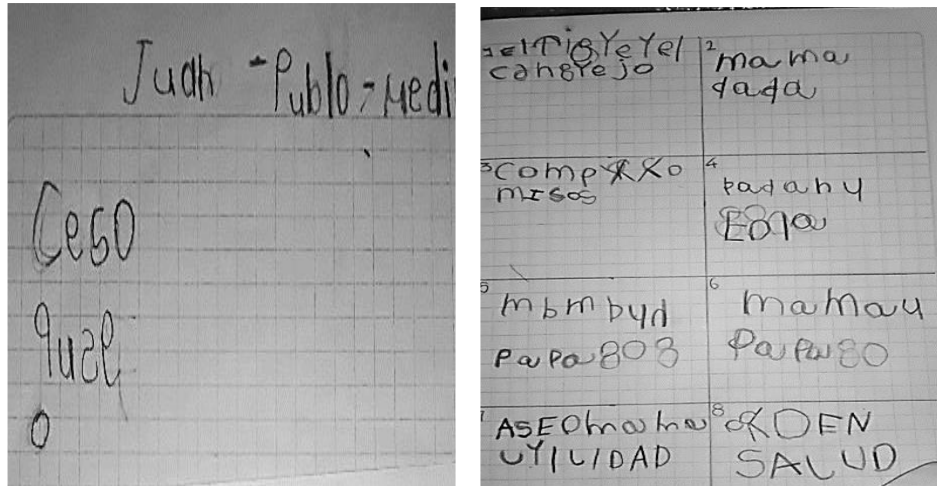 Juan - Pablo - Medi
Ceso
quse
o
1 el TigYe Yel
cangYejo
2 mama
dada
3 comp
misos
4
5 mbmbyd
papa 808
6 mamay
Papa 80
7 ASEO mama
UYILIDAD
8 ORDEN
SALUD